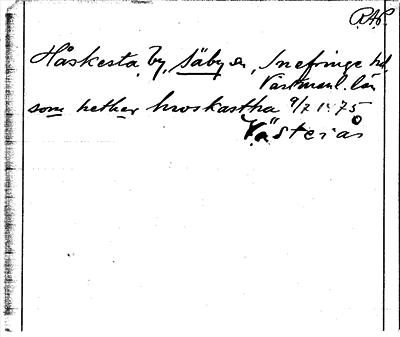 R.A.P.
Håskesta by, Säby sn, Snefringe hd,
Västmanl. län
som hether hroskastha 9/7 1475
Västerås